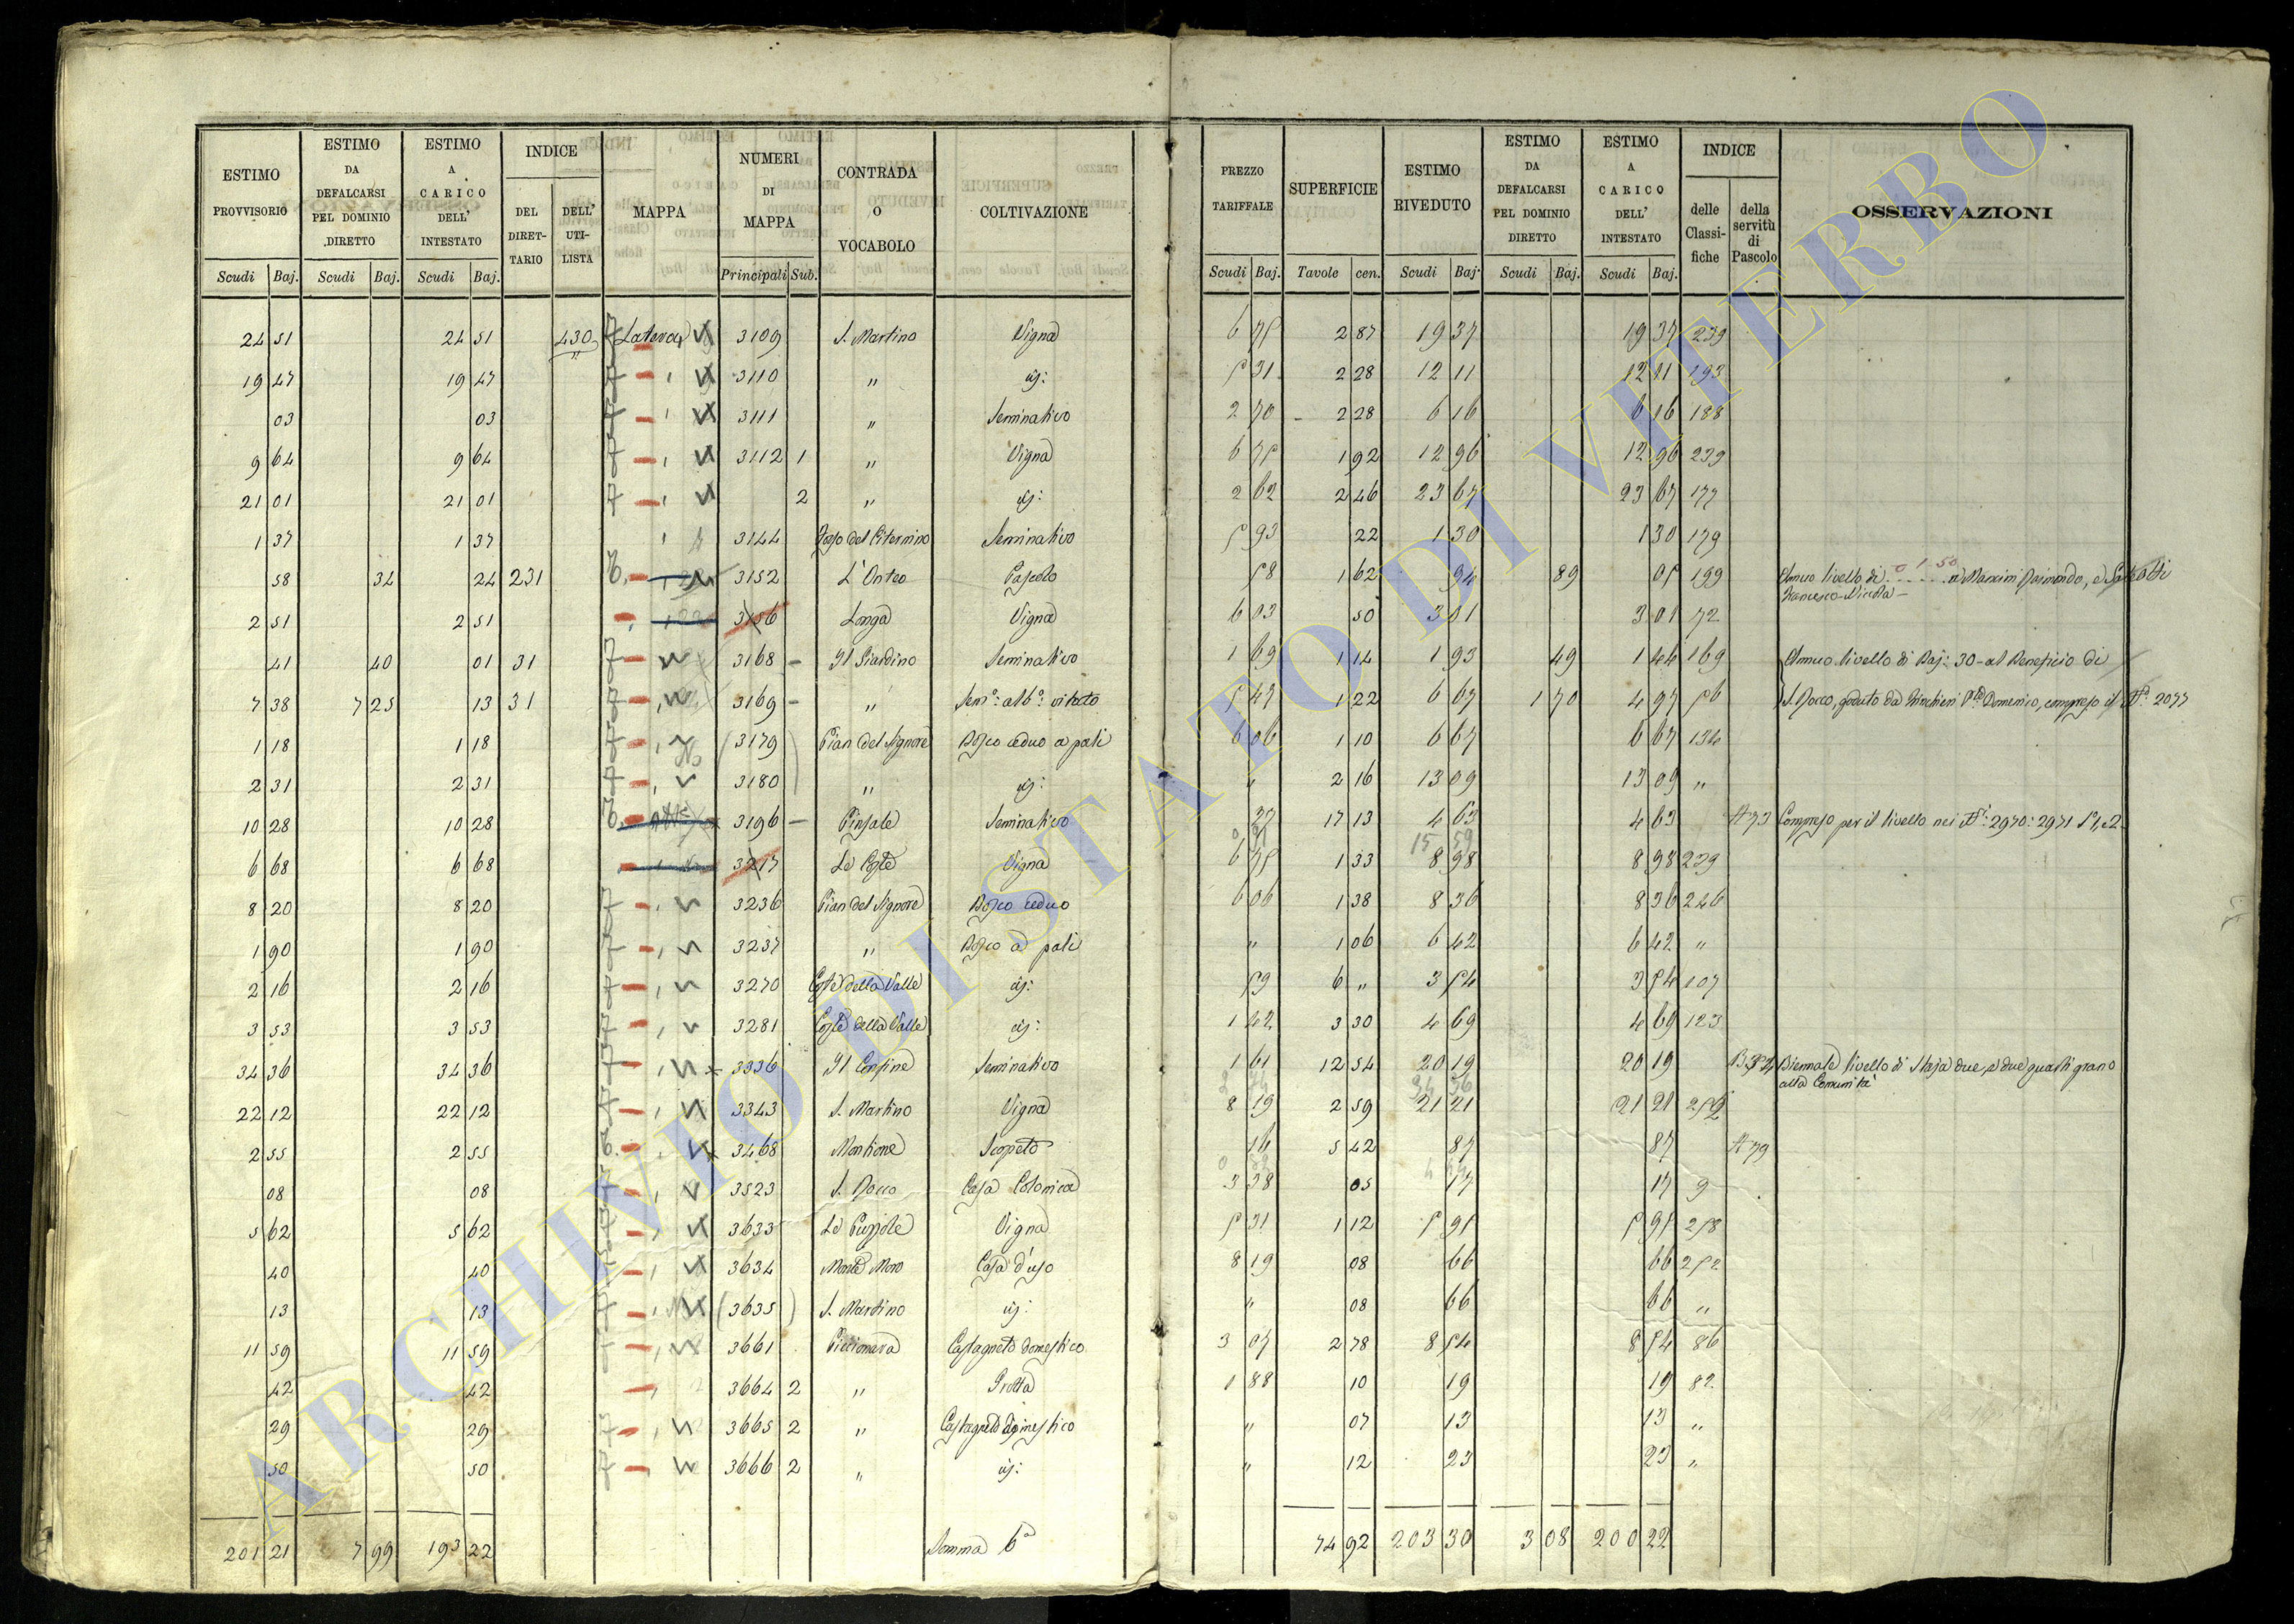 ESTIMO PROVVISORIO | ESTIMO DA DEFALCARSI PEL DOMINIO DIRETTO | ESTIMO A CARICO DELL' INTESTATO | INDICE | MAPPA | NUMERI DI MAPPA | CONTRADA O VOCABOLO | COLTIVAZIONE | PREZZO TARIFFALE | SUPERFICIE | ESTIMO RIVEDUTO | ESTIMO DA DEFALCARSI PEL DOMINIO DIRETTO | ESTIMO A CARICO DELL' INTESTATO | INDICE | OSSERVAZIONI
DEL DIRETTARIO | DELL' UTILISTA | delle Classifiche | della servitù di Pascolo
Scudi Baj. | Scudi Baj. | Scudi Baj. | Principali Sub. | Scudi Baj. | Tavole cen. | Scudi Baj. | Scudi Baj. | Scudi Baj.
24 51 | 24 51 | 430 | Latera | 3109 | S. Martino | Vigna | 6 75 | 2 87 | 19 37 | 19 37 | 239
19 47 | 19 47 | 3110 | " | id: | 5 31 | 2 28 | 12 11 | 12 11 | 193
03 | 03 | 3111 | " | Seminativo | 2 70 | 2 28 | 6 16 | 6 16 | 188
9 64 | 9 64 | 3112 1 | " | Vigna | 6 75 | 1 92 | 12 96 | 12 96 | 239
21 01 | 21 01 | 2 | " | id: | 2 62 | 2 46 | 23 67 | 23 67 | 177
1 37 | 1 37 | 3144 | Seminativo | 5 93 | 22 | 1 30 | 1 30 | 179
58 | 34 | 24 | 231 | 3152 | Pascolo | 58 | 1 62 | 94 | 89 | 05 | 199 | Annuo livello di 0 1 50 a Mancini Raimondo, e
Francesco
2 51 | 2 51 | 3156 | Longa | Vigna | 6 03 | 50 | 3 01 | 3 01 | 72
41 | 40 | 01 | 31 | 3168 | Il Giardino | Seminativo | 1 69 | 1 14 | 1 93 | 49 | 1 44 | 169 | Annuo livello di Baj: 30 al Beneficio di
7 38 | 7 25 | 13 | 31 | 3169 | " | Sem°: alb°: vitato | 5 47 | 1 22 | 6 67 | 1 70 | 4 97 | 56 | S. Rocco, goduto da Domenico, compreso il N°: 2077
1 18 | 1 18 | 3179 | Pian del Signore | Bosco ceduo a pali | 6 06 | 1 10 | 6 67 | 6 67 | 134
2 31 | 2 31 | 3180 | " | id: | " | 2 16 | 13 09 | 13 09 | "
10 28 | 10 28 | 3196 | Pinzale | Seminativo | 27 | 17 13 | 4 63 | 4 63 | A 73 | Compreso per il livello nei N¹: 2970: 2971 S. 1, e 2
15 59
6 68 | 6 68 | 3217 | Le Coste | Vigna | 6 75 | 1 33 | 8 98 | 8 98 | 239
8 20 | 8 20 | 3236 | Pian del Signore | Bosco ceduo | 6 06 | 1 38 | 8 36 | 8 36 | 246
1 90 | 1 90 | 3237 | " | Bosco a pali | " | 1 06 | 6 42 | 6 42 | "
2 16 | 2 16 | 3270 | Coste della Valle | id: | 59 | 6 " | 3 54 | 3 54 | 107
3 53 | 3 53 | 3281 | Coste della Valle | id: | 1 42 | 3 30 | 4 69 | 4 69 | 123
34 36 | 34 36 | 3336 | Il Confine | Seminativo | 1 61 | 12 54 | 20 19 | 20 19 | Biennale livello di Staja due, e due quarti grano
alla Comunità
22 12 | 22 12 | 3343 | S. Martino | Vigna | 8 19 | 2 59 | 21 21 | 21 21 | 252
2 55 | 2 55 | 3468 | Montione | Scopeto | 16 | 5 42 | 87 | 87 | A 79
08 | 08 | 3523 | S. Rocco | Casa Colonica | 3 38 | 05 | 17 | 17 | 9
5 62 | 5 62 | 3633 | Le Puzzole | Vigna | 5 31 | 1 12 | 5 95 | 5 95 | 258
40 | 40 | 3634 | Monte Moro | Casa d'uso | 8 19 | 08 | 66 | 66 | 252
13 | 13 | 3635 | S. Martino | id: | " | 08 | 66 | 66 | "
11 59 | 11 59 | 3661 | Piccionara | Castagneto domestico | 3 07 | 2 78 | 8 54 | 8 54 | 86
42 | 42 | 3664 2 | " | Grotta | 1 88 | 10 | 19 | 19 | 82
29 | 29 | 3665 2 | " | Castagneto domestico | " | 07 | 13 | 13 | "
50 | 50 | 3666 2 | " | id: | " | 12 | 23 | 23 | "
201 21 | 7 99 | 193 22 | Somma 6ª | 74 92 | 203 30 | 3 08 | 200 22
ARCHIVIO DI STATO DI VITERBO